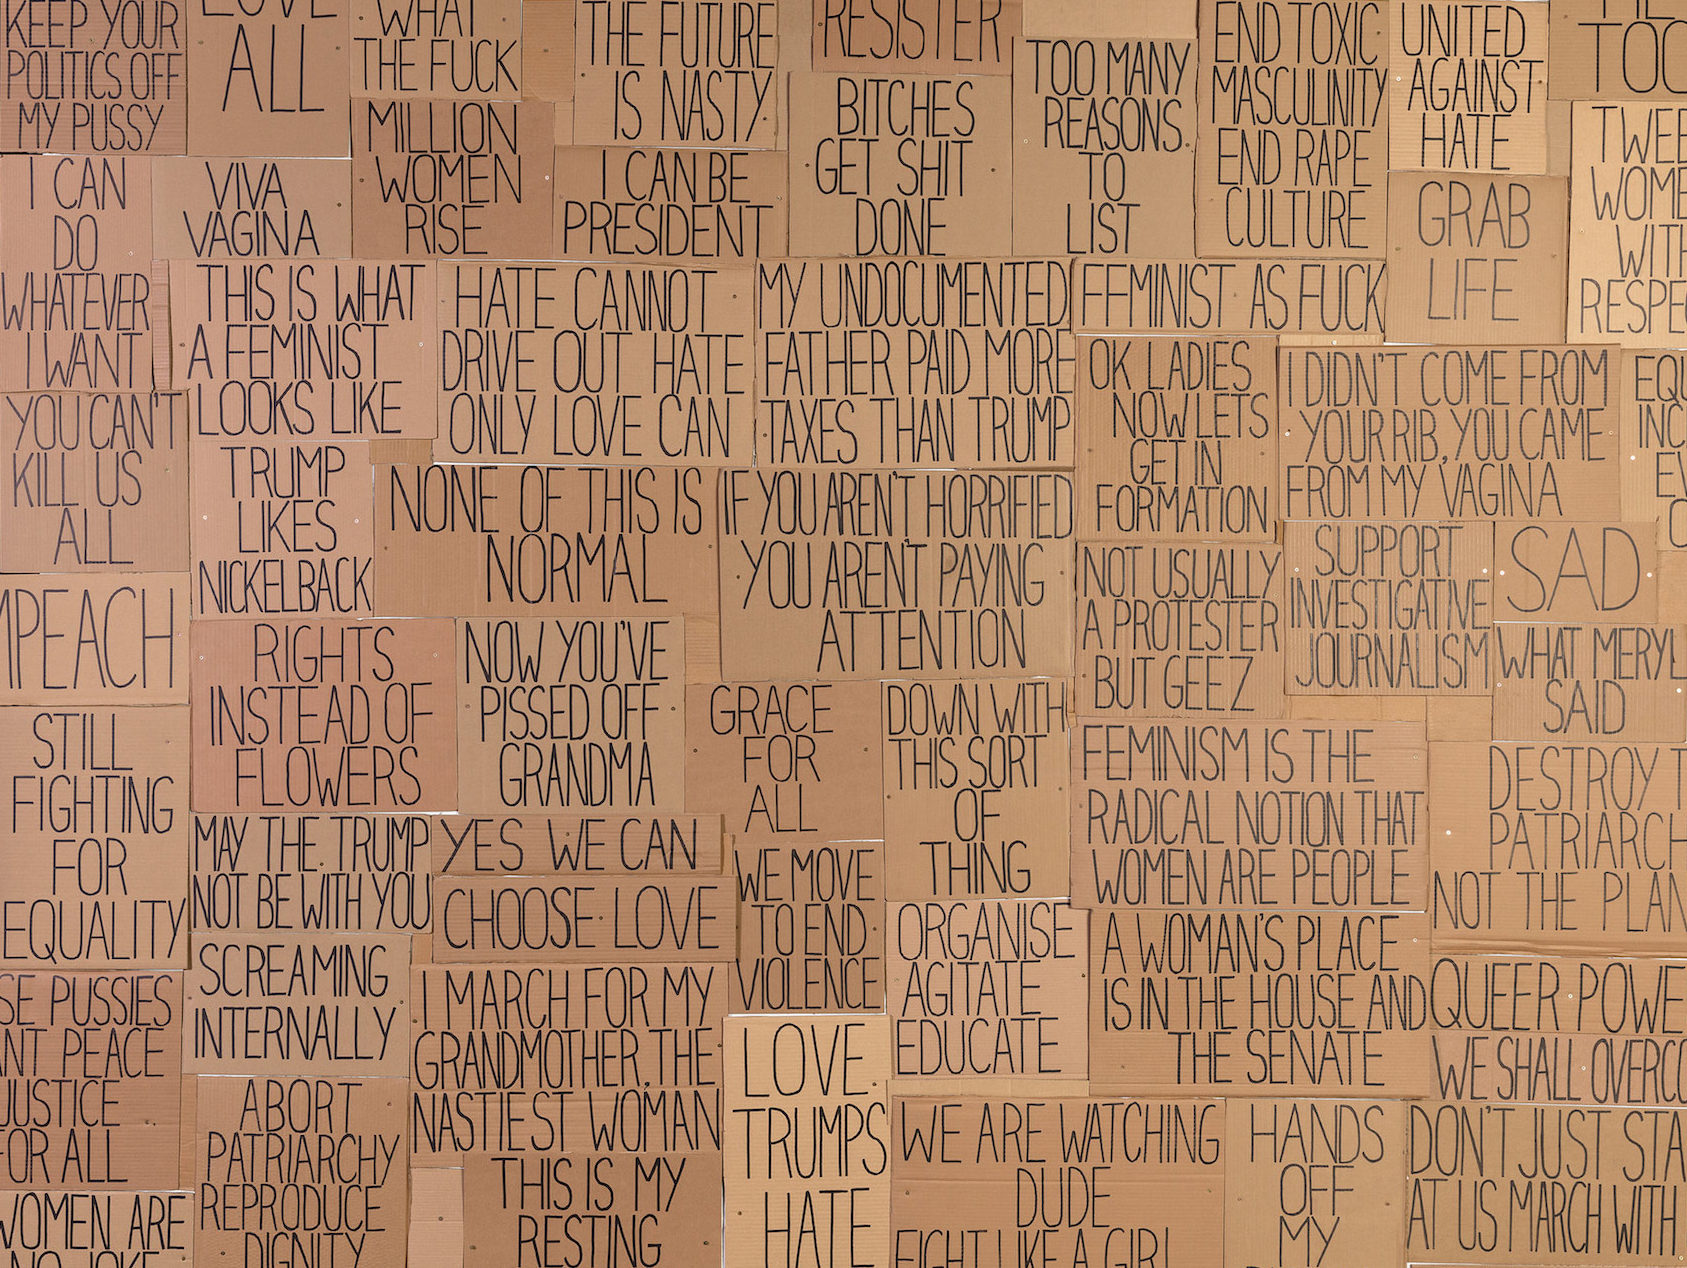 KEEP YOUR
POLITICS OFF
MY PUSSY
LOVE
ALL
WHAT
THE FUCK
THE FUTURE
IS NASTY
RESISTER
TOO MANY
REASONS
TO
LIST
END TOXIC
MASCULINITY
END RAPE
CULTURE
UNITED
AGAINST
HATE
TOO
I CAN
DO
WHATEVER
I WANT
VIVA
VAGINA
MILLION
WOMEN
RISE
I CAN BE
PRESIDENT
BITCHES
GET SHIT
DONE
GRAB
LIFE
WITH
THIS IS WHAT
A FEMINIST
LOOKS LIKE
HATE CANNOT
DRIVE OUT HATE
ONLY LOVE CAN
MY UNDOCUMENTED
FATHER PAID MORE
TAXES THAN TRUMP
FEMINIST AS FUCK
OK LADIES
NOW LETS
GET IN
FORMATION
I DIDN'T COME FROM
YOUR RIB, YOU CAME
FROM MY VAGINA
YOU CAN'T
KILL US
ALL
TRUMP
LIKES
NICKELBACK
NONE OF THIS IS
NORMAL
IF YOU AREN'T HORRIFIED
YOU AREN'T PAYING
ATTENTION
NOT USUALLY
A PROTESTER
BUT GEEZ
SUPPORT
INVESTIGATIVE
JOURNALISM
SAD
WHAT MERYL
SAID
MPEACH
RIGHTS
INSTEAD OF
FLOWERS
NOW YOU'VE
PISSED OFF
GRANDMA
GRACE
FOR
ALL
DOWN WITH
THIS SORT
OF
THING
FEMINISM IS THE
RADICAL NOTION THAT
WOMEN ARE PEOPLE
DESTROY T
PATRIARCH
NOT THE PLAN
STILL
FIGHTING
FOR
EQUALITY
MAY THE TRUMP
NOT BE WITH YOU
YES WE CAN
CHOOSE LOVE
WE MOVE
TO END
VIOLENCE
ORGANISE
AGITATE
EDUCATE
A WOMAN'S PLACE
IS IN THE HOUSE AND
THE SENATE
QUEER POWE
WE SHALL OVERCO
SE PUSSIES
ANT PEACE
JUSTICE
FOR ALL
SCREAMING
INTERNALLY
I MARCH FOR MY
GRANDMOTHER, THE
NASTIEST WOMAN
LOVE
TRUMPS
HATE
WE ARE WATCHING
DUDE
FIGHT LIKE A GIRL
HANDS
OFF
MY
DON'T JUST STA
AT US MARCH WITH
WOMEN ARE
NO JOKE
ABORT
PATRIARCHY
REPRODUCE
DIGNITY
THIS IS MY
RESTING